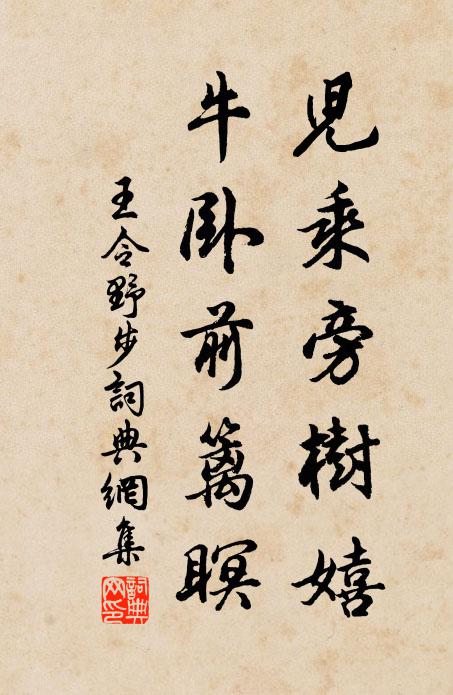 兒乘旁樹嬉
牛臥前籬瞑
王令野步詞典網集
詞典网印